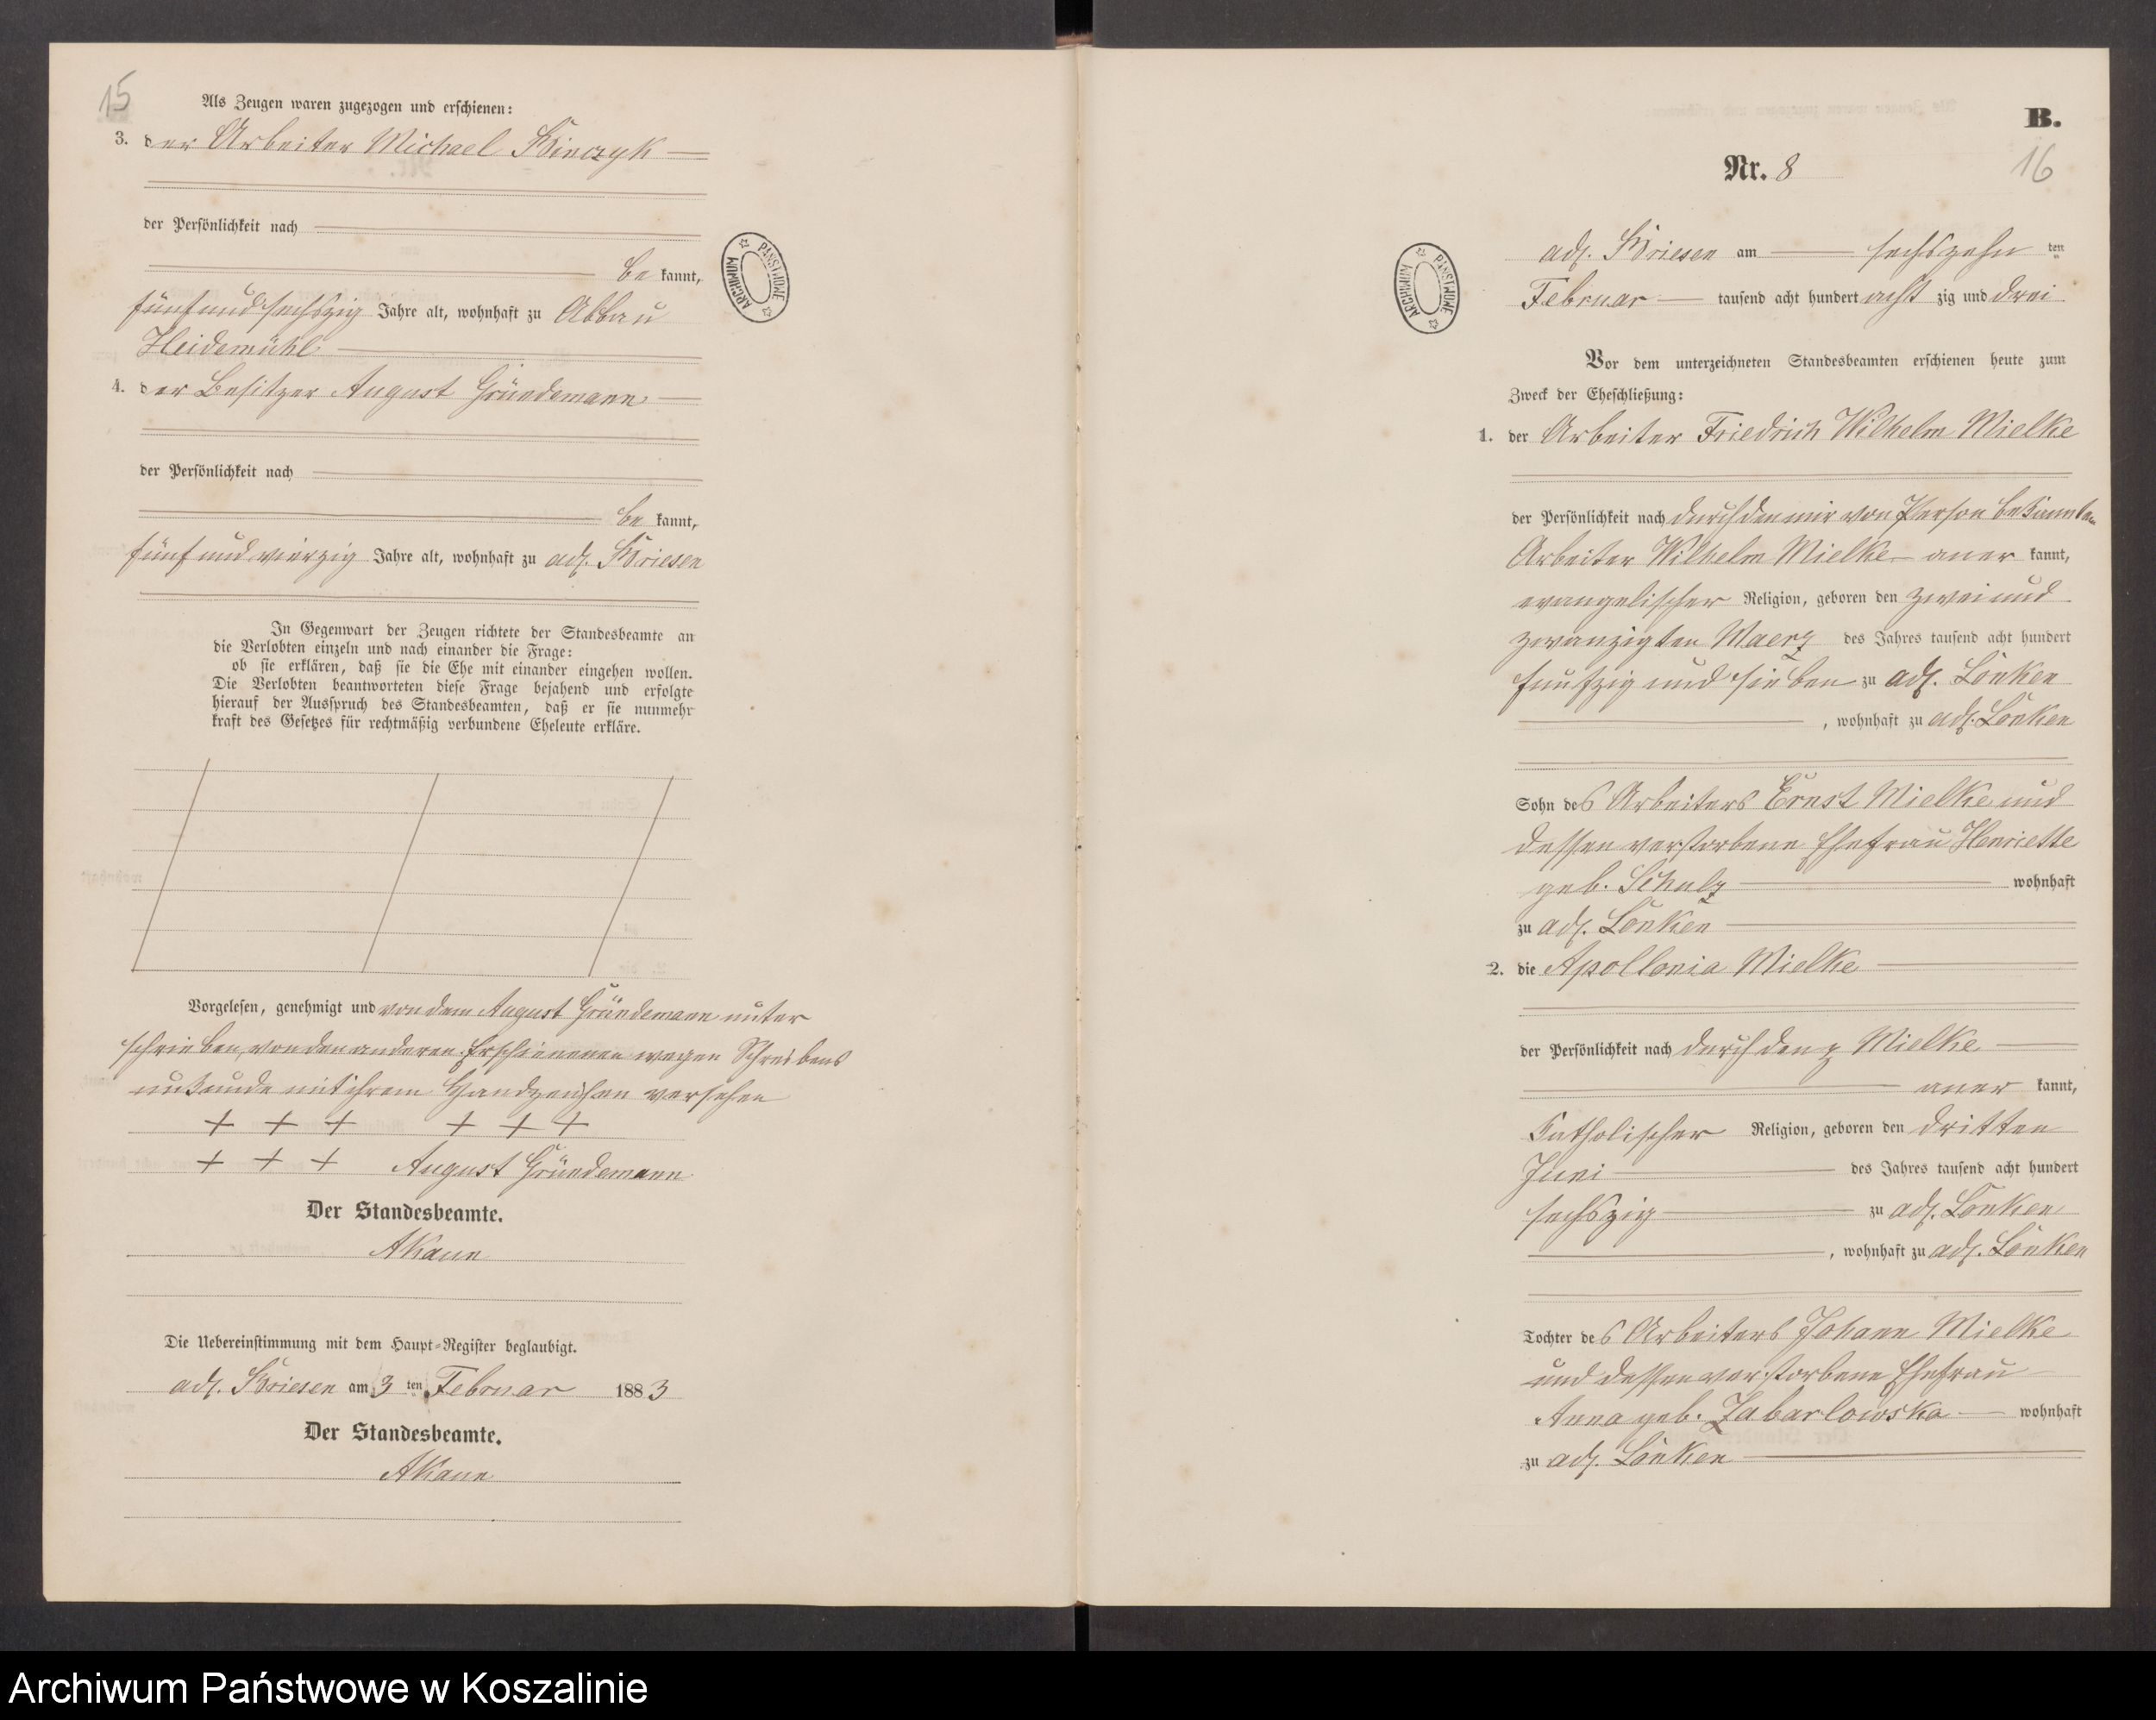 15
Als Zeugen waren zugezogen und erschienen:
3. der Arbeiter Michael Binczyk
der Persönlichkeit nach
be kannt,
fünf und sechszig Jahre alt, wohnhaft zu Abbau
Heidemühl
4. der Besitzer August Gründemann
der Persönlichkeit nach
be kannt,
fünf und vierzig Jahre alt, wohnhaft zu adl. Briesen
In Gegenwart der Zeugen richtete der Standesbeamte an
die Verlobten einzeln und nach einander die Frage:
ob sie erklären, daß sie die Ehe mit einander eingehen wollen.
Die Verlobten beantworteten diese Frage bejahend und erfolgte
hierauf der Ausspruch des Standesbeamten, daß er sie nunmehr
kraft des Gesetzes für rechtmäßig verbundene Eheleute erkläre.
Vorgelesen, genehmigt und von dem August Gründemann unter
schrieben, von den anderen Erschienenen wegen Schreibens
unkunde mit ihrem Handzeichen versehen
+ + + + + +
+ + + August Gründemann
Der Standesbeamte.
AKaun
Die Uebereinstimmung mit dem Haupt-Register beglaubigt.
adl. Briesen am 3 ten Februar 1883
Der Standesbeamte.
AKaun
ARCHIWUM PAŃSTWOWE
B.
16
Nr. 8
ARCHIWUM PAŃSTWOWE
adl. Briesen am sechszehn ten
Februar tausend acht hundert acht zig und drei
Vor dem unterzeichneten Standesbeamten erschienen heute zum
Zweck der Eheschließung:
1. der Arbeiter Friedrich Wilhelm Mielke
der Persönlichkeit nach durch den mir von Person bekannten
Arbeiter Wilhelm Mielke aner kannt,
evangelischer Religion, geboren den zwei und
zwanzigten Maerz des Jahres tausend acht hundert
funfzig und sieben zu adl. Lönken
, wohnhaft zu adl. Lönken
Sohn des Arbeiters Ernst Mielke und
dessen verstorbene Ehefrau Henriette
geb. Schulz wohnhaft
zu adl. Lönken
2. die Apollonia Mielke
der Persönlichkeit nach durch den p Mielke
aner kannt,
Katholischer Religion, geboren den dritten
Juni des Jahres tausend acht hundert
sechszig zu adl. Lönken
, wohnhaft zu adl. Lönken
Tochter des Arbeiters Johann Mielke
und dessen verstorbene Ehefrau
Anna geb. Zabarlowska wohnhaft
zu adl. Lönken
Archiwum Państwowe w Koszalinie